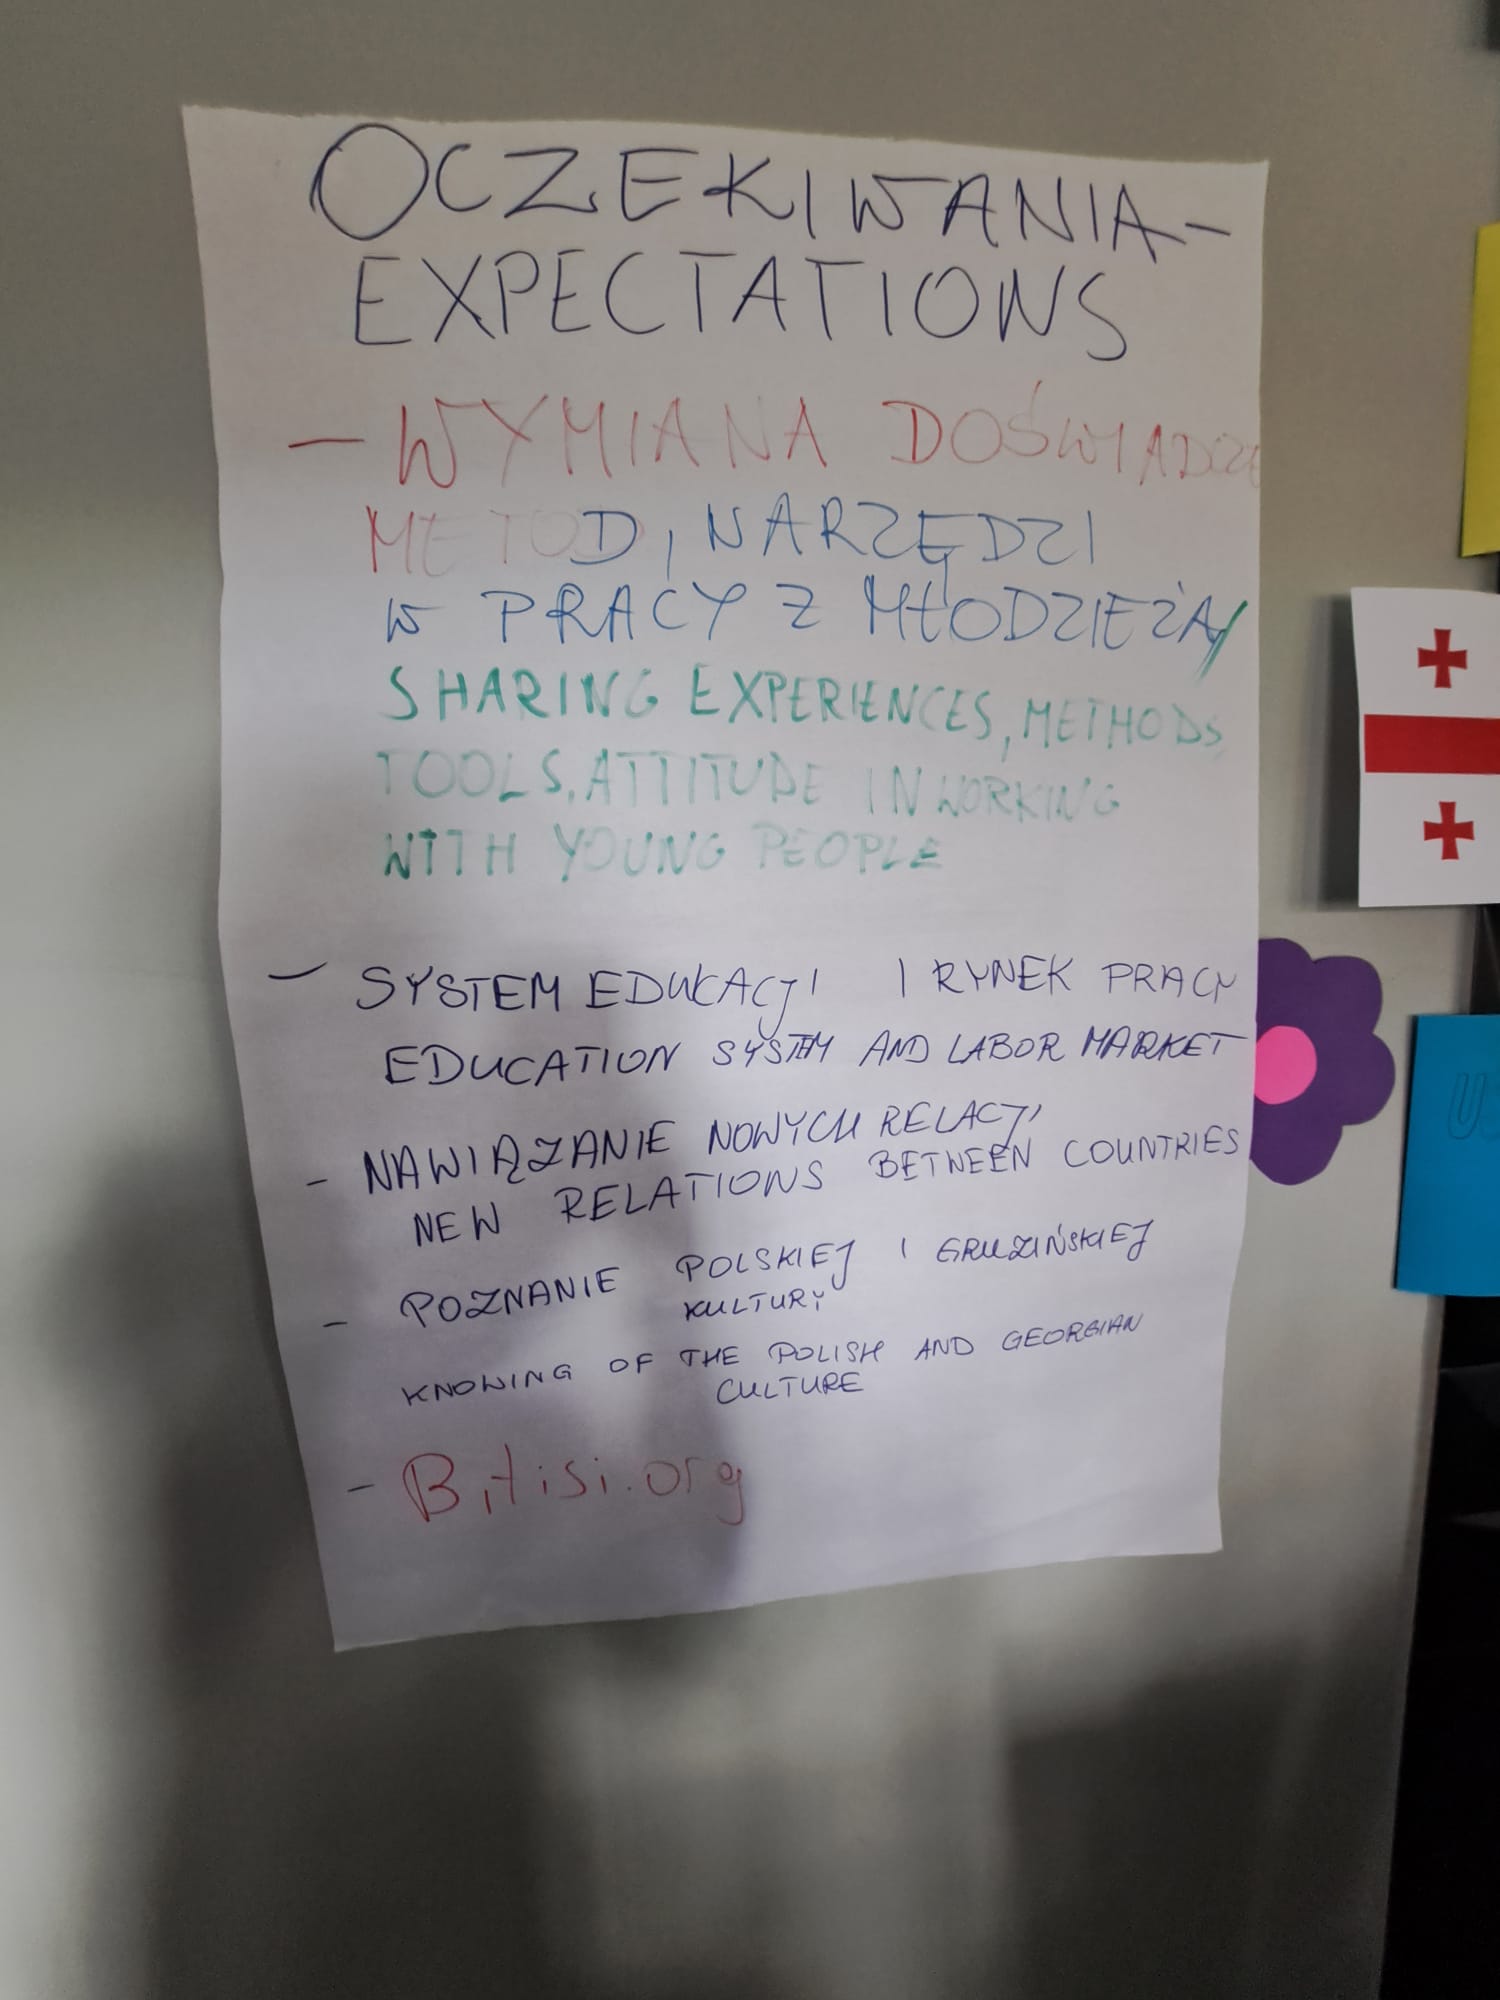 OCZEKIWANIA-
EXPECTATIONS
- WYMIANA DOŚWIADCZE
METOD, NARZĘDZI
W PRACY Z MŁODZIEŻĄ/
SHARING EXPERIENCES, METHODS,
TOOLS, ATTITUDE IN WORKING
WITH YOUNG PEOPLE
- SYSTEM EDUKACJI I RYNEK PRACY
EDUCATION SYSTEM AND LABOR MARKET
- NAWIĄZANIE NOWYCH RELACJI
NEW RELATIONS BETWEEN COUNTRIES
- POZNANIE POLSKIEJ I GRUZIŃSKIEJ
KULTURY
KNOWING OF THE POLISH AND GEORGIAN
CULTURE
- Bitisi.org